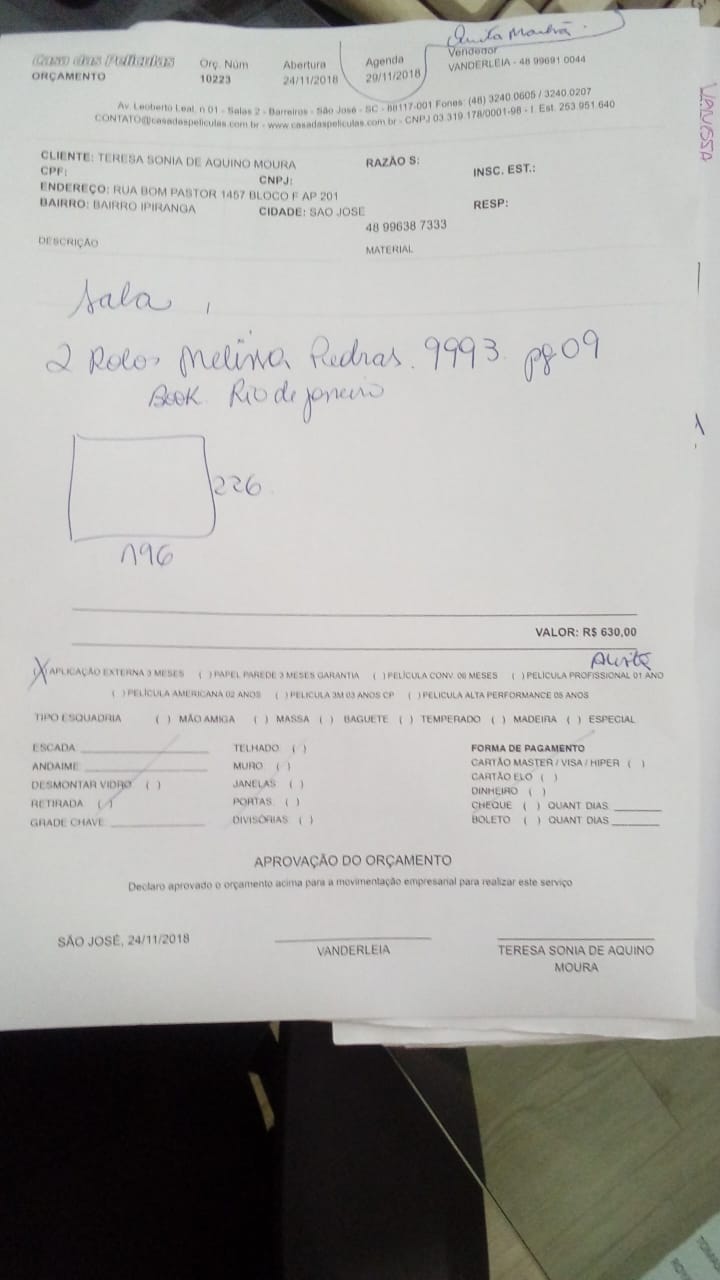 Quinta Manhã.
Casa das Películas
ORÇAMENTO
Orç. Núm
10223
Abertura
24/11/2018
Agenda
29/11/2018
Vendedor
VANDERLEIA - 48 99691 0044
Av. Leoberto Leal, n 01 - Salas 2 - Barreiros - São José - SC - 88117-001 Fones: (48) 3240.0605 / 3240.0207
CONTATO@casadaspeliculas.com.br - www.casadaspeliculas.com.br - CNPJ 03.319.178/0001-98 - I. Est. 253.951.640
VANESSA
CLIENTE: TERESA SONIA DE AQUINO MOURA
RAZÃO S:
INSC. EST.:
CPF:
CNPJ:
ENDEREÇO: RUA BOM PASTOR 1457 BLOCO F AP 201
BAIRRO: BAIRRO IPIRANGA
CIDADE: SAO JOSE
RESP:
48 99638 7333
DESCRIÇÃO
MATERIAL
Sala
2 Rolos Melissa Pedras. 9993. pg 09
Book Rio de janeiro
226
196
VALOR: R$ 630,00
(X) APLICAÇÃO EXTERNA 3 MESES ( ) PAPEL PAREDE 3 MESES GARANTIA ( ) PELÍCULA CONV. 06 MESES ( ) PELÍCULA PROFISSIONAL 01 ANO
( ) PELÍCULA AMERICANA 02 ANOS ( ) PELICULA 3M 03 ANOS CP ( ) PELICULA ALTA PERFORMANCE 05 ANOS
TIPO ESQUADRIA ( ) MÃO AMIGA ( ) MASSA ( ) BAGUETE ( ) TEMPERADO ( ) MADEIRA ( ) ESPECIAL
ESCADA
ANDAIME
DESMONTAR VIDRO ( )
RETIRADA ( )
GRADE CHAVE
TELHADO ( )
MURO ( )
JANELAS ( )
PORTAS ( )
DIVISÓRIAS ( )
FORMA DE PAGAMENTO
CARTÃO MASTER / VISA / HIPER ( )
CARTÃO ELO ( )
DINHEIRO ( )
CHEQUE ( ) QUANT DIAS
BOLETO ( ) QUANT DIAS
APROVAÇÃO DO ORÇAMENTO
Declaro aprovado o orçamento acima para a movimentação empresarial para realizar este serviço
SÃO JOSÉ, 24/11/2018
VANDERLEIA
TERESA SONIA DE AQUINO
MOURA